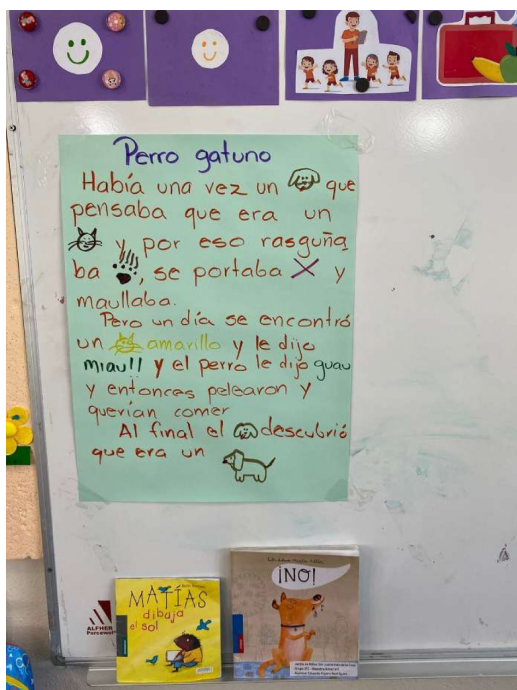 Perro gatuno
Había una vez un que
pensaba que era un
y por eso rasguña
ba , se portaba X y
maullaba.
Pero un día se encontró
un amarillo y le dijo
miau!! y el perro le dijo guau
y entonces pelearon y
querían comer
Al final el descubrió
que era un
MATÍAS
dibuja
el sol
¡NO!
ALFHER